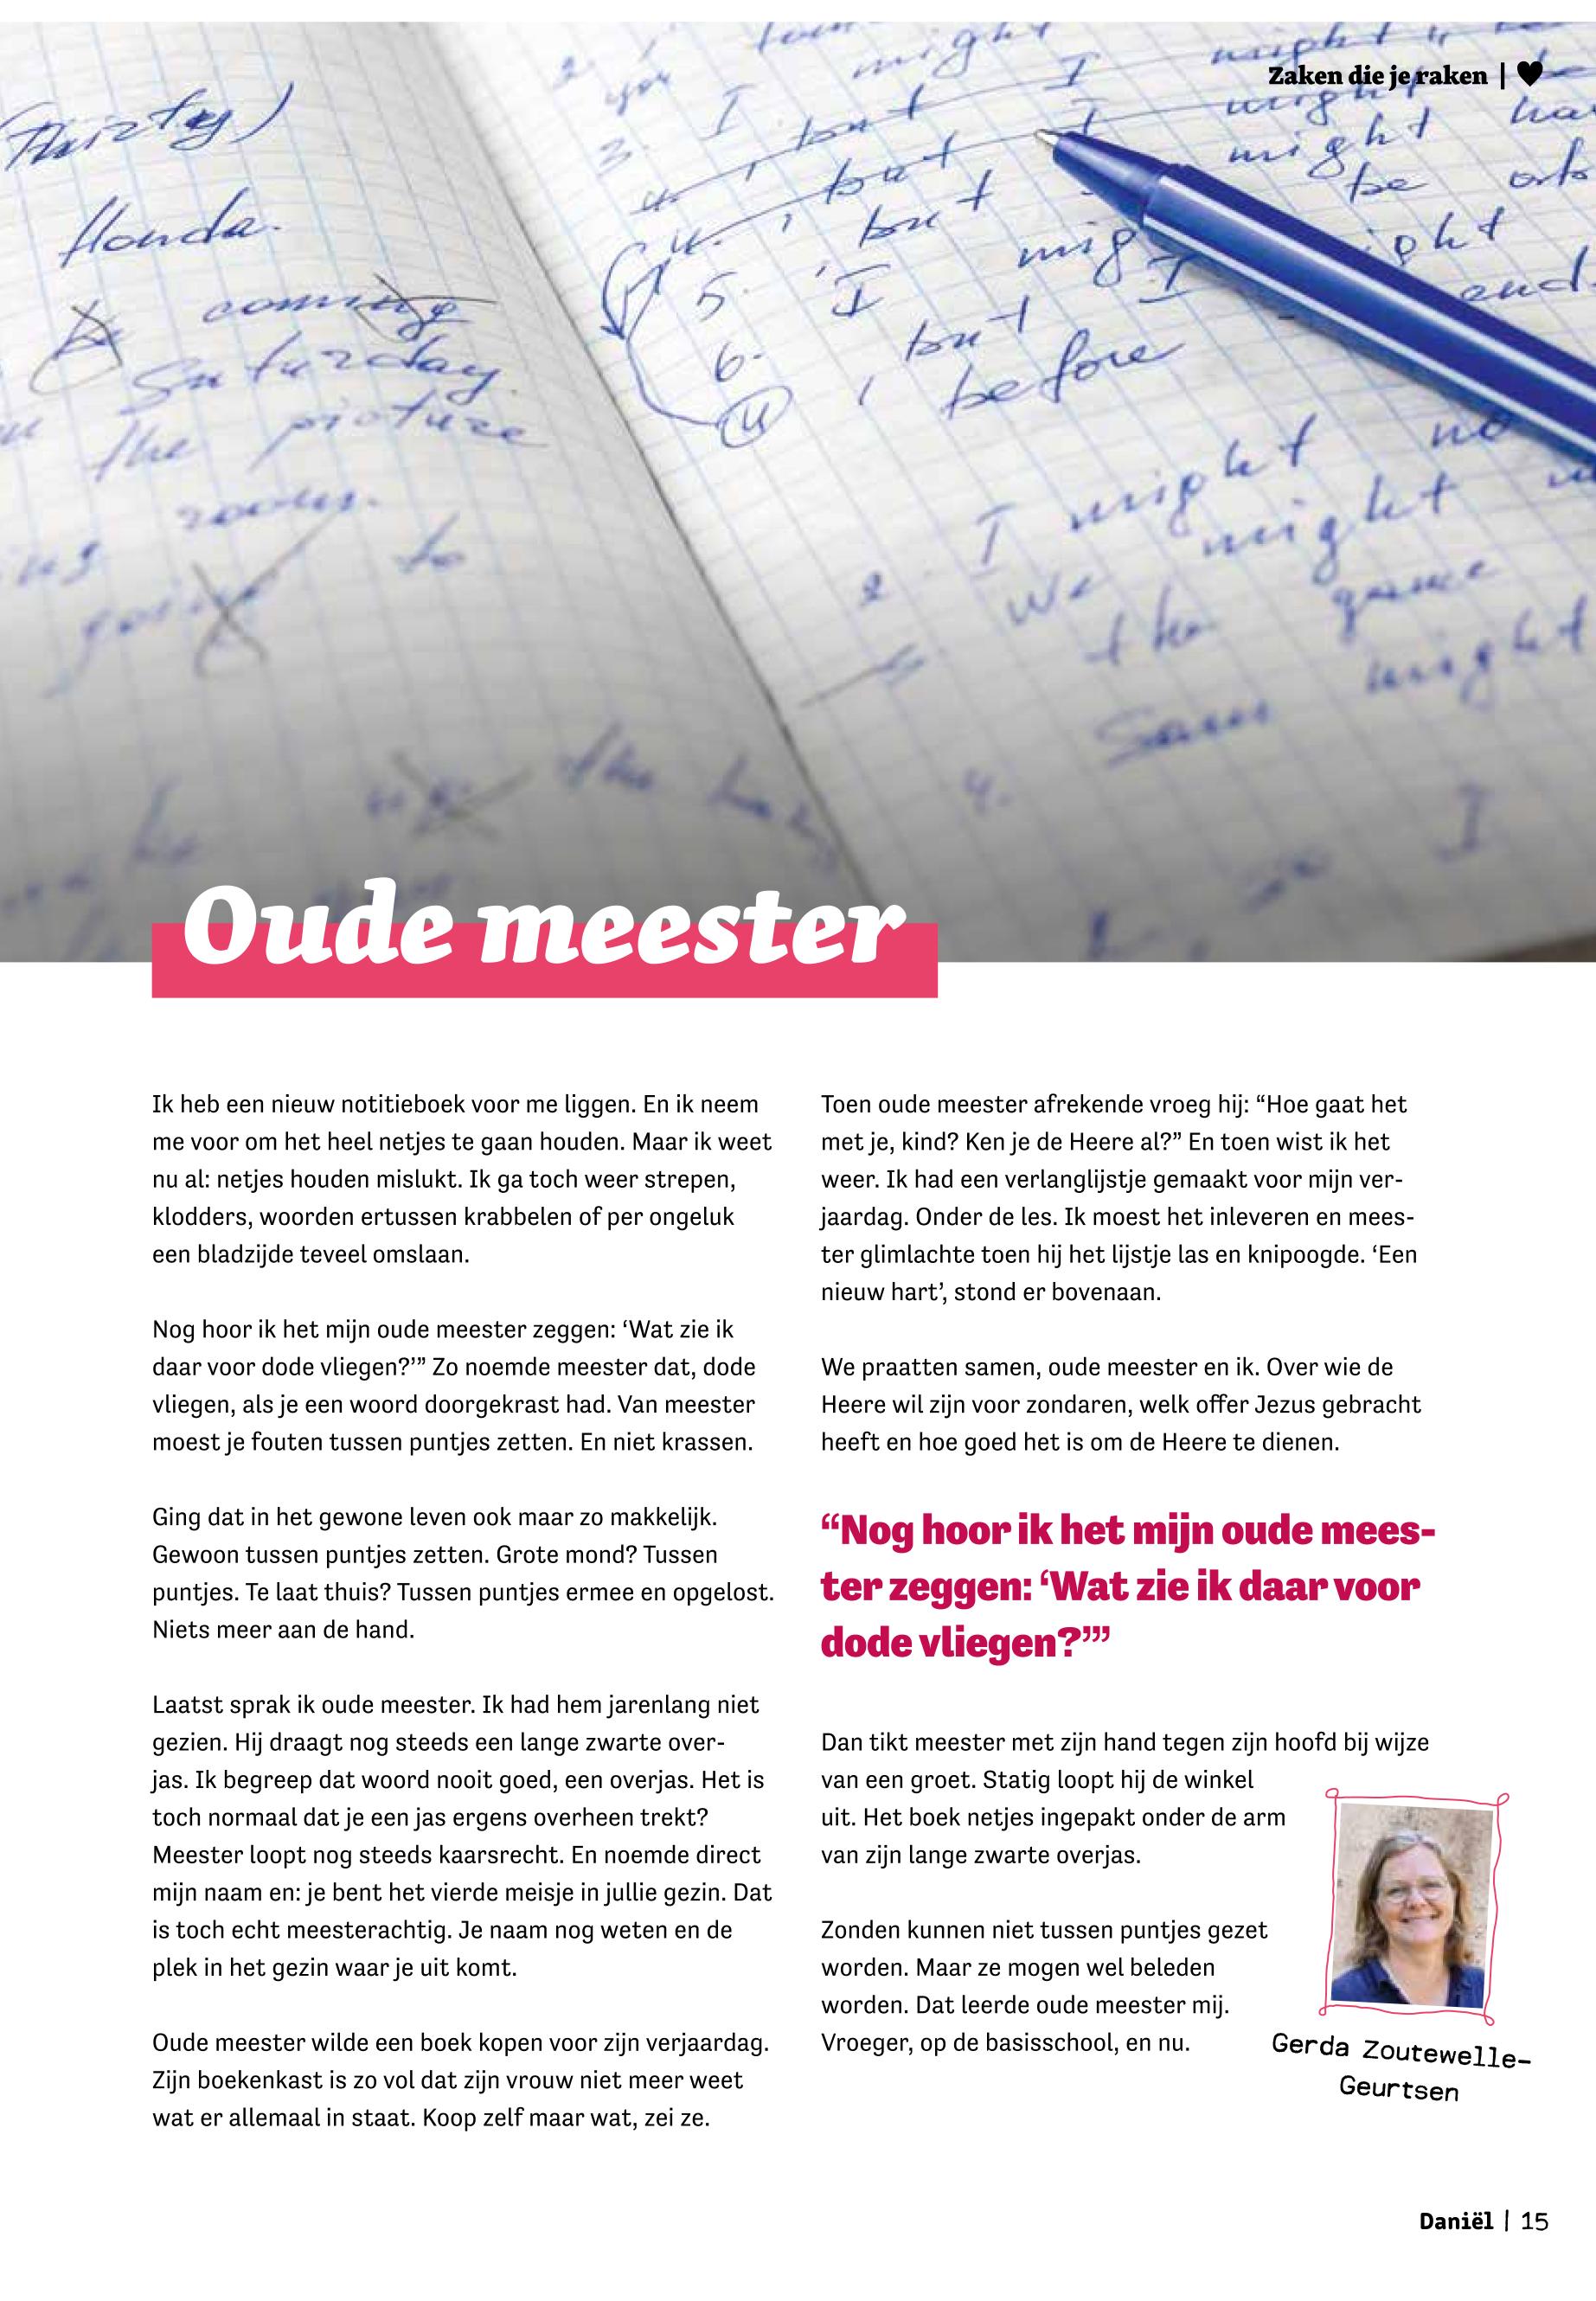 Zaken die je raken |
Thirty)
Honda.
coming
Saturday
the picture
room.
going to
the
might
3. I might
but I might
but I might
, but might be
5. I might
6. but I
before
2. I might
We might
the game
Sam might
4. I
Oude meester
Ik heb een nieuw notitieboek voor me liggen. En ik neem
me voor om het heel netjes te gaan houden. Maar ik weet
nu al: netjes houden mislukt. Ik ga toch weer strepen,
klodders, woorden ertussen krabbelen of per ongeluk
een bladzijde teveel omslaan.
Nog hoor ik het mijn oude meester zeggen: ‘Wat zie ik
daar voor dode vliegen?’” Zo noemde meester dat, dode
vliegen, als je een woord doorgekrast had. Van meester
moest je fouten tussen puntjes zetten. En niet krassen.
Ging dat in het gewone leven ook maar zo makkelijk.
Gewoon tussen puntjes zetten. Grote mond? Tussen
puntjes. Te laat thuis? Tussen puntjes ermee en opgelost.
Niets meer aan de hand.
Laatst sprak ik oude meester. Ik had hem jarenlang niet
gezien. Hij draagt nog steeds een lange zwarte over-
jas. Ik begreep dat woord nooit goed, een overjas. Het is
toch normaal dat je een jas ergens overheen trekt?
Meester loopt nog steeds kaarsrecht. En noemde direct
mijn naam en: je bent het vierde meisje in jullie gezin. Dat
is toch echt meesterachtig. Je naam nog weten en de
plek in het gezin waar je uit komt.
Oude meester wilde een boek kopen voor zijn verjaardag.
Zijn boekenkast is zo vol dat zijn vrouw niet meer weet
wat er allemaal in staat. Koop zelf maar wat, zei ze.
Toen oude meester afrekende vroeg hij: “Hoe gaat het
met je, kind? Ken je de Heere al?” En toen wist ik het
weer. Ik had een verlanglijstje gemaakt voor mijn ver-
jaardag. Onder de les. Ik moest het inleveren en mees-
ter glimlachte toen hij het lijstje las en knipoogde. ‘Een
nieuw hart’, stond er bovenaan.
We praatten samen, oude meester en ik. Over wie de
Heere wil zijn voor zondaren, welk offer Jezus gebracht
heeft en hoe goed het is om de Heere te dienen.
“Nog hoor ik het mijn oude mees-
ter zeggen: ‘Wat zie ik daar voor
dode vliegen?’”
Dan tikt meester met zijn hand tegen zijn hoofd bij wijze
van een groet. Statig loopt hij de winkel
uit. Het boek netjes ingepakt onder de arm
van zijn lange zwarte overjas.
Zonden kunnen niet tussen puntjes gezet
worden. Maar ze mogen wel beleden
worden. Dat leerde oude meester mij.
Vroeger, op de basisschool, en nu.
Gerda Zoutewelle-
Geurtsen
Daniël | 15